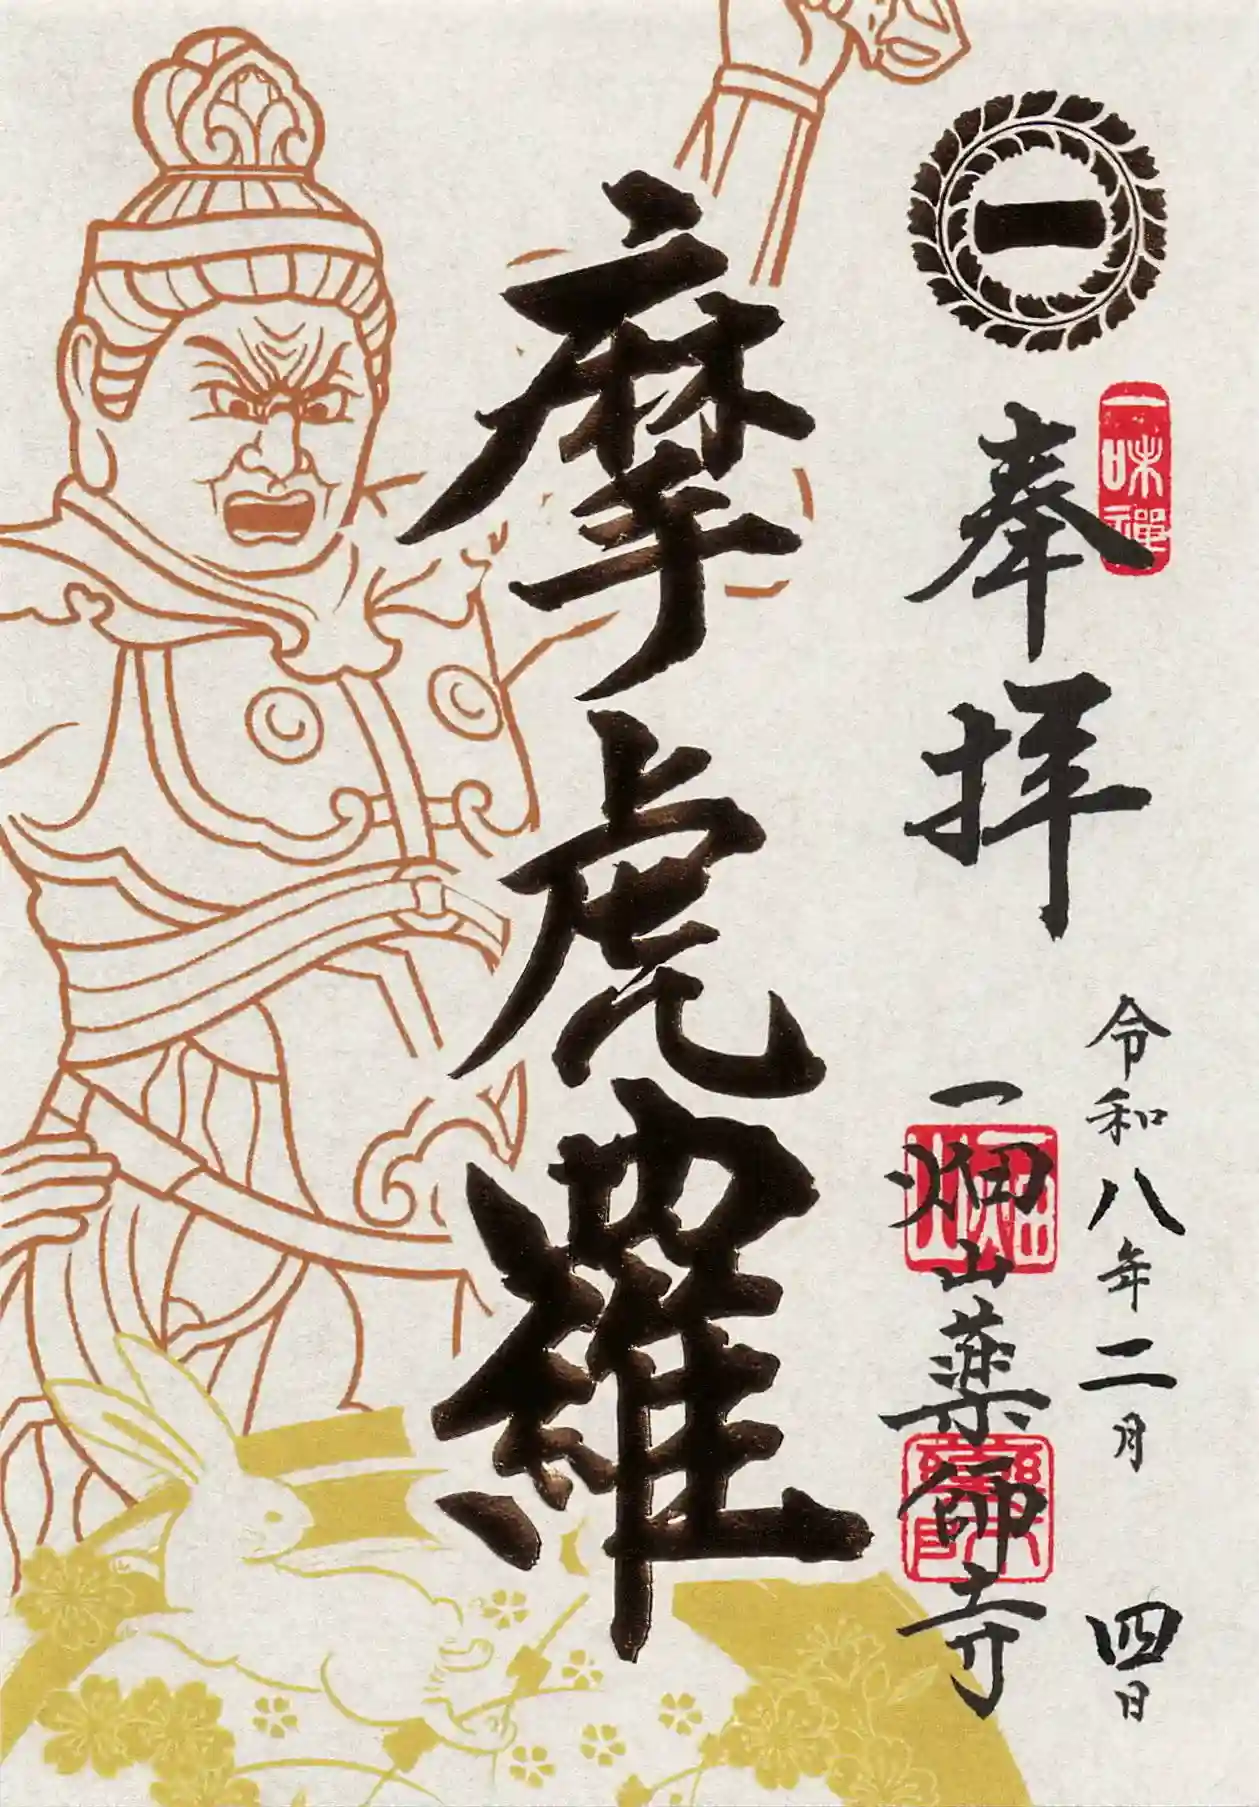 一
一味禅
奉拝
令和八年二月 四日
一畑山薬師寺
摩虎羅